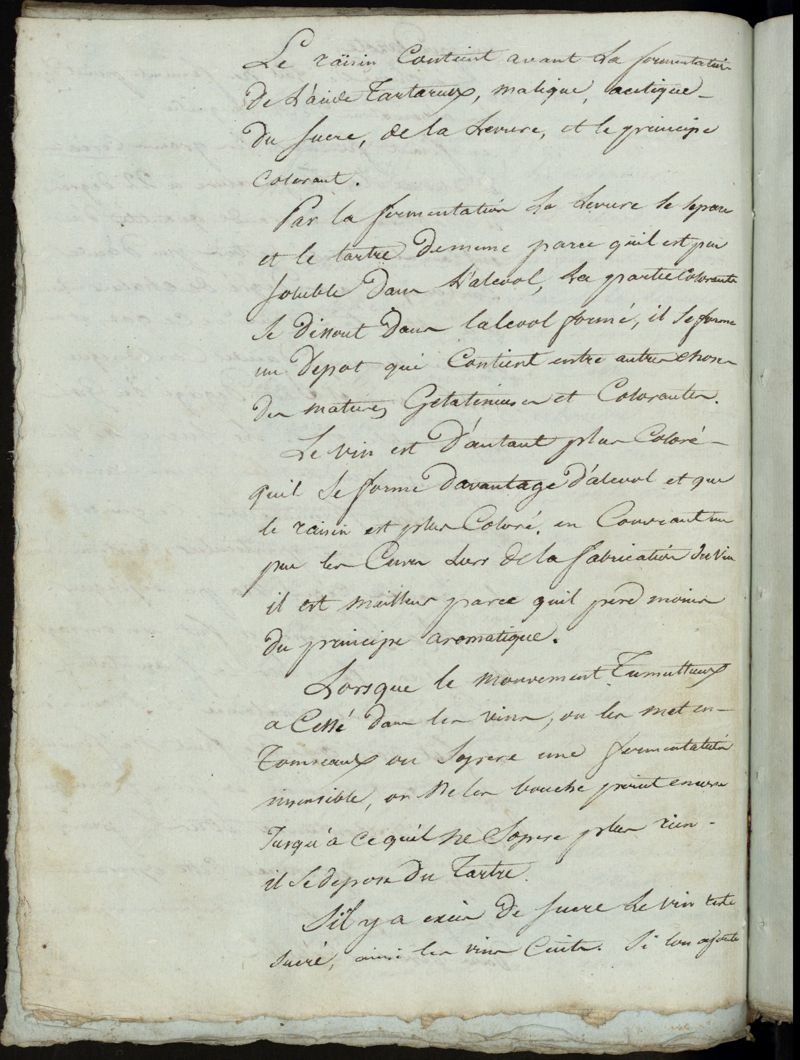 Le raisin Contient avant La fermentation
de L'acide Tartareux, malique, acetique
du Sucre, de la Levure, et le principe
Colorant.
Par la fermentation La Levure se separe
et le tartre de meme parce qu'il est peu
Soluble dans L'alcool, La partie Colorante
Se dissout dans l'alcool formé, il se forme
un Depot qui Contient entre autres choses
des matieres Gelatineuses et Colorantes.
Le vin est D'autant plus Coloré
qu'il Se forme Davantage d'alcool et que
le raisin est plus Coloré. en Couvrant un
peu les Cuves Lors de la fabrication du vin
il est meilleur parce qu'il perd moins
du principe aromatique.
Lorsque le mouvement Tumultueux
a Cessé dans les vins, on les met en
Tonneaux ou Sopere une fermentation
insensible, on Ne les bouche point encore
Jusqu'à ce qu'il ne Sopere plus rien
il Se depose du Tartre.
S'il y a excès de Sucre Le vin reste
Sucré, ainsi les vins Cuits. Si lon ajoute